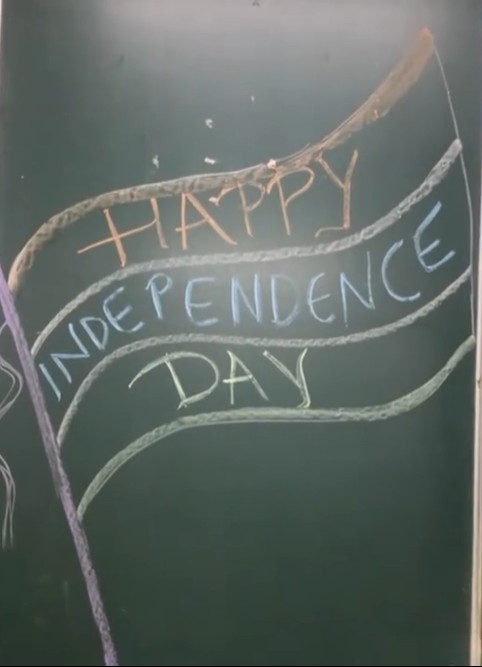 HAPPY
INDEPENDENCE
DAY